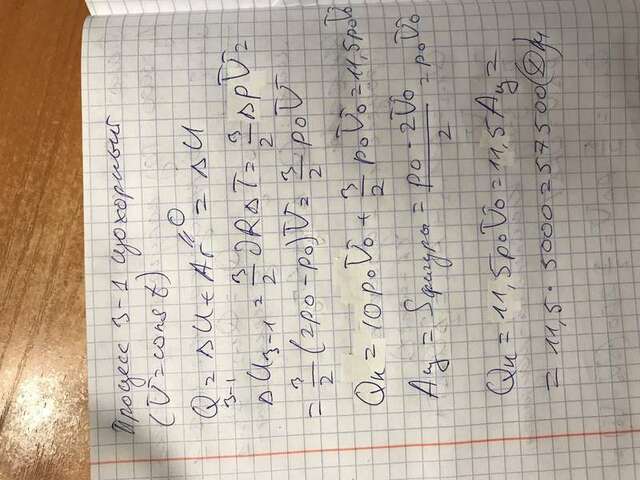 Процесс 3-1 изохорный
(V=const)
Q3-1 = ΔU + Aг = ΔU
0
ΔU3-1 = 3/2 νRΔT = 3/2 ΔpV =
= 3/2 (2p0 - p0)V = 3/2 p0V
Qн = 10p0V0 + 3/2 p0V0 = 11,5p0V0
Aц = Sфигуры = p0 · 2V0 / 2 = p0V0
Qн = 11,5p0V0 = 11,5Aц =
= 11,5 · 5000 = 57500 (Дж)